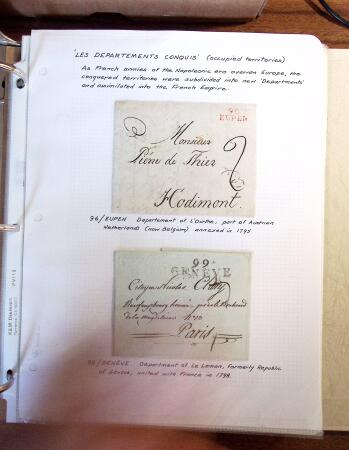 'LES DEPARTEMENTS CONQUIS' (occupied territories)
As French armies of the Napoleonic era overran Europe, the
conquered territories were subdivided into new 'Departments'
and assimilated into the French Empire.
96
EUPEN
Monsieur
Pierre de Thier
2
Hodimont.
96/EUPEN Department of L'Ourthe, part of Austrian
Netherlands (now Belgium) annexed in 1795
99
GENÈVE
Citoyen Nicolas
de la Magdelaine No 20
Paris
99/GENÈVE Department of Le Leman, formerly Republic
of Geneva, united with France in 1798.